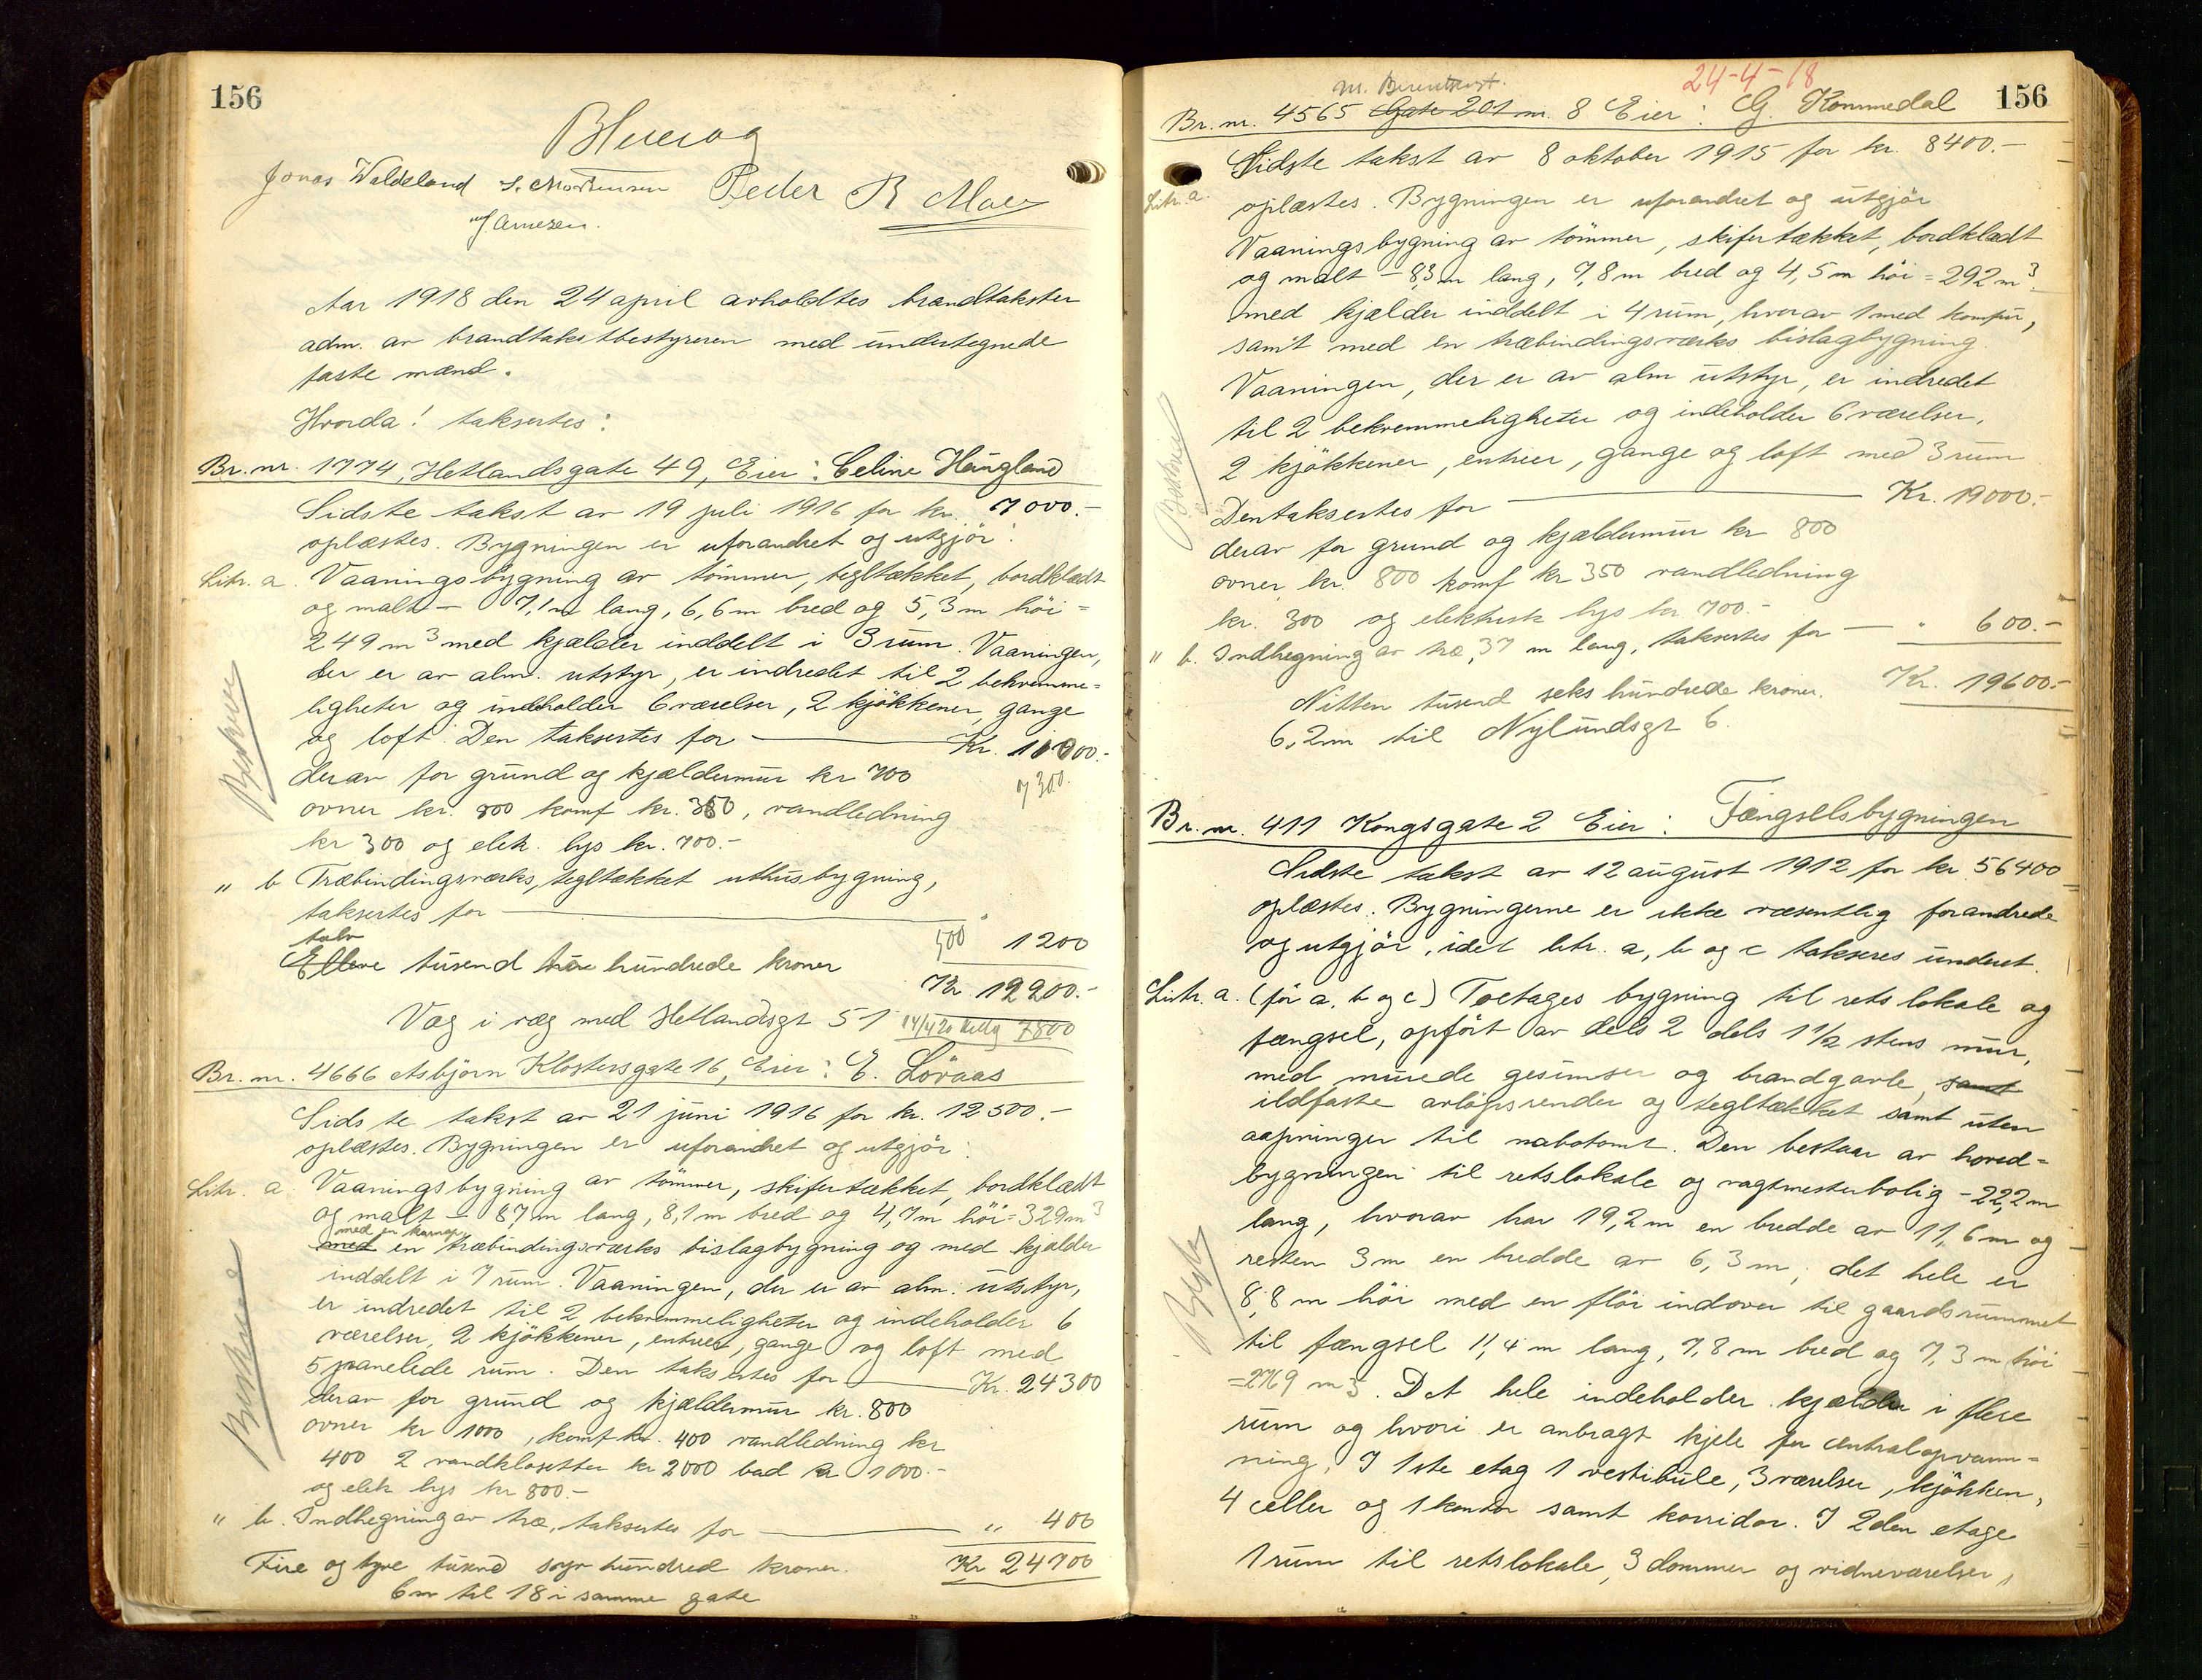 156
Jonas Waldeland S. Mortensen Peder R Moe
Aar 1918 den 24 april avholdtes brandtakster
adm. av brandtakstbestyreren med undertegnede
faste mænd.
Hvorda! taksertes:
Br. nr. 1774, Hetlandsgate 49, Eier: Celine Haugland
Sidste takst av 19 juli 1916 for kr. 7000.-
oplæstes. Bygningen er uforandret og utgjör:
Litr. a. Vaaningsbygning av tömmer, tegltækket, bordklædt
og malt - 7,1 m lang, 6,6 m bred og 5,3 m höi =
249 m3 med kjælder inddelt i 3 rum. Vaaningen,
der er av alm. utstyr, er indredet til 2 bekvemme=
ligheter og indeholder 6 værelser, 2 kjökkener, gange
og loft. Den taksertes for Kr. 11000.-
derav for grund og kjældermur kr 700 7300.
ovner kr. 800 komf kr. 350, vandledning
kr 300 og elek. lys kr. 700.-
" b Træbindingsverks, tegltækket uthusbygning,
taksertes for " 1200
500
tolv
Elleve tusend to hundrede kroner Kr. 12200.-
Væg i væg med Hetlandsgt 51 14/4 20 7800
Br. nr. 4666 Asbjörn Klostersgate 16, Eier: E. Lövaas
Sidste takst av 21 juni 1916 for kr. 12500.-
oplæstes. Bygningen er uforandret og utgjör:
Litr. a. Vaaningsbygning av tömmer, skifertækket, bordklædt
og malt - 8,7 m lang, 8,1 m bred og 4,7 m höi = 329 m3
med en karnap
med en træbindingsværks bislagbygning og med kjælder
inddelt i 7 rum. Vaaningen, der er av alm. utstyr,
er indredet til 2 bekvemmeligheter og indeholder 6
værelser, 2 kjökkener, entreer, gange og loft med
5 panelede rum. Den taksertes for Kr. 24300
derav for grund og kjældermur kr. 800
ovner kr 1000, komf kr. 400 vandledning kr
400 2 vandklosetter kr 2000 bad kr 1000.-
og elek lys kr 800.-
" b. Indhegning av træ, taksertes for " 400
Fire og tyve tusend syv hundred kroner. Kr 24700
6 m til 18 i samme gate
Beskrevet
Beskrevet
24-4-18
156
Br. nr. 4565 Gate 201 nr. 8 Eier: G. Kommedal
Sidste takst av 8 oktober 1915 for kr. 8400.-
Litr. a. oplæstes. Bygningen er uforandret og utgjör
Vaaningsbygning av tömmer, skifertækket, bordklædt
og malt - 8,3 m lang, 7,8 m bred og 4,5 m höi = 292 m3.
med kjælder inddelt i 4 rum, hvorav 1 med komfur,
samt med en træbindingsværks bislagbygning.
Vaaningen, der er av alm utstyr, er indredet
til 2 bekvemmeligheter og indeholder 6 værelser,
2 kjökkener, entreer, gange og loft med 3 rum
Den taksertes for Kr. 19000.-
derav for grund og kjældermur kr 800
ovner kr. 800 komf kr 350 vandledning
kr. 300 og elektrisk lys kr. 700.-
" b. Indhegning av træ, 37 m lang, taksertes for " 600.-
Nitten tusend seks hundrede kroner. Kr. 19600.-
6,2 m til Nylundsgt 6.
Br. nr. 411 Kongsgate 2 Eier: Fængselsbygningen
Sidste takst av 12 august 1912 for kr. 56400
oplæstes. Bygningerne er ikke væsentlig forandrede
og utgjör, idet litr. a, b og c takseres underet.
Litr. a. (för a, b og c) Toetages bygning til rets lokale og
fængsel, opfört av dels 2 dels 1 1/2 stens mur,
med murede gesimser og brandgavle, samt
ildfaste avlöpsrender og tegltækket samt uten
aapninger til nabotomt. Den bestaar av hoved=
bygningen til retslokale og vagtmesterbolig - 22,2 m
lang, hvorav har 19,2 m en bredde av 11,6 m og
resten 3 m en bredde av 6,3 m, det hele er
8,8 m höi med en flöi indover til gaardsrummet
til fængsel 11,4 m lang, 7,8 m bred og 7,3 m höi
= 2769 m3. Det hele indeholder kjælder i flere
rum og hvori er anbragt kjele for centralopvarm=
ning. I 1ste etag 1 vestibule, 3 værelser, kjökken,
4 celler og 1 kontor samt korridor. I 2den etage
1 rum til retslokale, 3 dommer og vidneværelser,
Beskrevet